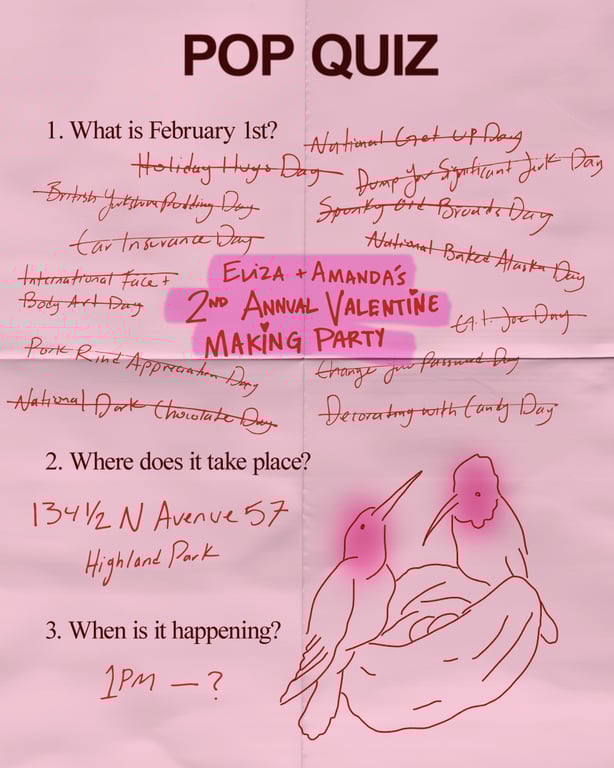 POP QUIZ
1. What is February 1st?
National Get Up Day
Holiday Hugs Day
Dump Your Significant Jerk Day
British Yorkshire Pudding Day
Spunky Old Broads Day
Car Insurance Day
National Baked Alaska Day
International Face +
Body Art Day
ELIZA + AMANDA'S
2ND ANNUAL VALENTINE
MAKING PARTY
G.I. Joe Day
Pork Rind Appreciation Day
Change Your Password Day
National Dark Chocolate Day
Decorating with Candy Day
2. Where does it take place?
134 1/2 N Avenue 57
Highland Park
3. When is it happening?
1PM — ?